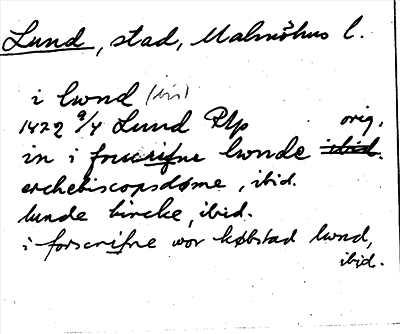 Lund, stad, Malmöhus l.
i lwnd (bis)
1472 9/4 Lund Rlp orig.
in i forscrifne lwnde ibid.
erchebiscopsdøme, ibid.
lunde kircke, ibid.
i forscrifne wor købstad lwnd,
ibid.